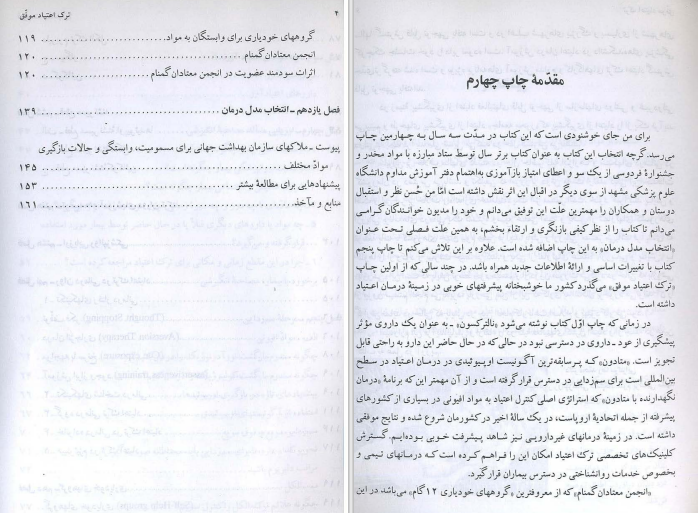 ۴
ترک اعتیاد موفّق
گروههای خودیاری برای وابستگان به مواد ۱۱۹
انجمن معتادان‌گمنام ۱۲۰
اثرات سودمند عضویت در انجمن معتادان‌گمنام ۱۲۰
فصل یازدهم ـ انتخاب مدل درمان ۱۳۹
پیوست ـ ملاکهای سازمان بهداشت جهانی برای مسمومیت، وابستگی و حالات بازگیری
موادّ مختلف ۱۴۵
پیشنهادهایی برای مطالعهٔ بیشتر ۱۵۳
منابع و مآخذ ۱۶۱
مقدّمهٔ چاپ چهارم
برای من جای خشنودی است که این کتاب در مدّت سه سال به چهارمین چاپ
می‌رسد. گرچه انتخاب این کتاب به عنوان کتاب برتر سال توسط ستاد مبارزه با مواد مخدر و
جشنوارهٔ فردوسی از یک سو و اعطای امتیاز بازآموزی به‌اهتمام دفتر آموزش مداوم دانشگاه
علوم پزشکی مشهد از سوی دیگر در اقبال این اثر نقش داشته است امّا من حُسن نظر و استقبال
دوستان و همکاران را مهمترین علّت این توفیق می‌دانم و خود را مدیون خوانندگان گرامی
می‌دانم تا کتاب را از نظر کیفی بازنگری و ارتقاء بخشم، به همین علت فصلی تحت عنوان
«انتخاب مدل درمان» به این چاپ اضافه شده است. علاوه بر این تلاش می‌کنم تا چاپ پنجم
کتاب با تغییرات اساسی و ارائهٔ اطلاعات جدید همراه باشد. در چند سالی که از اولین چاپ
«ترک اعتیاد موفق» می‌گذرد کشور ما خوشبختانه پیشرفتهای خوبی در زمینهٔ درمان اعتیاد
داشته است.
در زمانی که چاپ اوّل کتاب نوشته می‌شود «نالترکسون» ـ به عنوان یک داروی مؤثر
پیشگیری از عود ـ داروی در دسترسی نبود در حالی که در حال حاضر این دارو به راحتی قابل
تجویز است. «متادون» که پرسابقه‌ترین آگونیست اوپیوئیدی در درمان اعتیاد در سطح
بین‌المللی است برای سم‌زدایی در دسترس قرار گرفته است و از آن مهمتر این که برنامهٔ «درمان
نگهدارنده با متادون» که استراتژی اصلی کنترل اعتیاد به مواد افیونی در بسیاری از کشورهای
پیشرفته از جمله اتحادیهٔ اروپاست، در یک سالهٔ اخیر در کشورمان شروع شده و نتایج موفقی
داشته است. در زمینهٔ درمانهای غیردارویی نیز شاهد پیشرفت خوبی بوده‌ایم. گسترش
کلینیک‌های تخصصی ترک اعتیاد امکان این را فراهم کرده است که درمانهای تیمی و
بخصوص خدمات روانشناختی در دسترس بیماران قرار گیرد.
«انجمن معتادان‌گمنام» که از معروفترین «گروههای خودیاری ۱۲ گام» می‌باشد در این